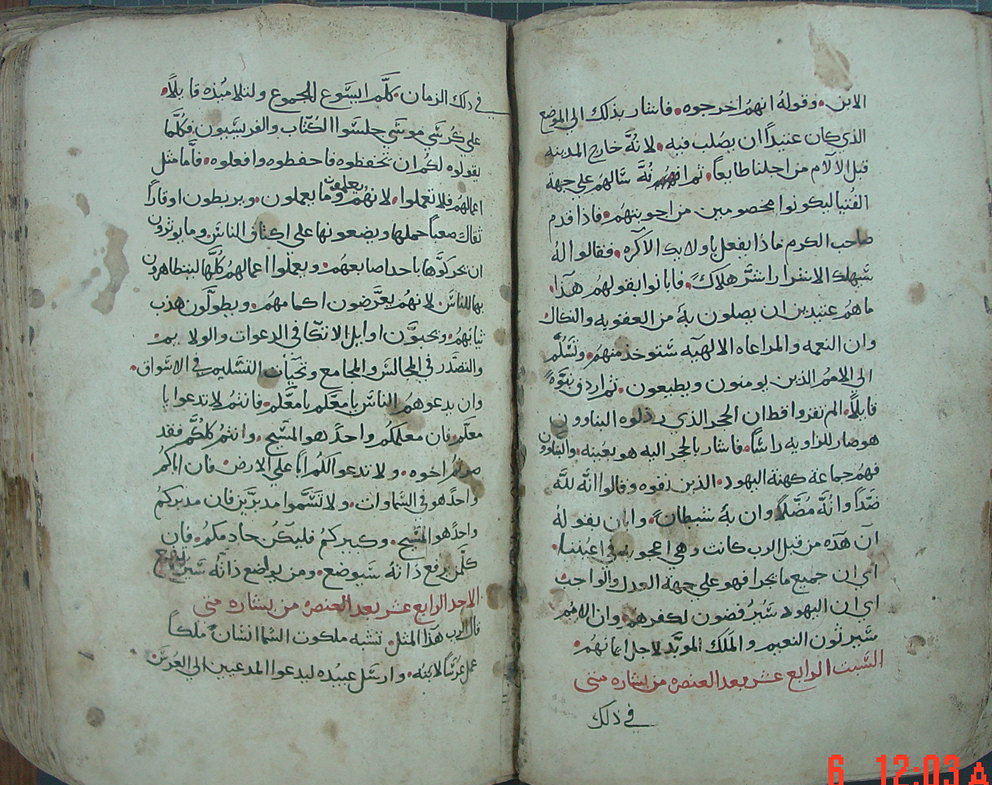 الابن. وقوله انهم اخرجوه. فاشار بذلك الى الموضع
الذي كان عتيداً ان يصلب فيه. لانه خارج المدينه
قبل الالام من اجلنا طايعاً. ثم انه سالهم على جهة
الفتيا ليكونوا مخصومين من اجوبتهم. فاذا قدم
صاحب الكرم ماذا يفعل باولايك الاكره. فقالوا له
سيهلك الاشرار اشر هلاك. فابانوا بقولهم هذا.
ما هم عتيدين ان يصلون به من العقوبه والنكال
وان النعمه والمراعاه الالهيه ستوخذ منهم. وتسلم
الى الامم الذين يومنون ويطيعون. ثم اردف بنبوه
قايلاً. الم تقروا قط ان الحجر الذي رذلوه البناوون
هو صار للزاويه راساً. فاشار بالحجر اليه هو بعينه. والبناوون
فهم جماعة كهنة اليهود. الذين نفوه وقالوا انه لله
ضداً وانه مضلاً وان به شيطان. وابان بقوله
ان هذه من قبل الرب كانت وهي اعجوبه في اعيننا.
اي ان جميع ما جرا فهو على جهة العدل والواجب
اي ان اليهود سيرفضون لكفرهم. وان الامم
سيرثون النعيم والملك الموبد لاجل ايمانهم.
السبت الرابع عشر بعد العنصره من بشاره متى
في ذلك
في ذلك الزمان. كلم ايسوع للجموع ولتلاميذه قايلاً.
على كرسي موسى جلسوا الكتاب والفريسيون. فكلما
يقولوه لكم ان تحفظوه فاحفظوه وافعلوه. فاما مثل
اعمالهم فلا تعملوا. لانهم يعلمون وما يعملون. ويربطون اوقاراً
ثقال صعباً حملها ويضعونها على اكتاف الناس. وما يوثرون
ان يحركوها باحد اصابعهم. ويعملوا اعمالهم كلها ليتظاهرون
بها للناس. لانهم يعرضون اكمامهم. ويطولون هدب
ثيابهم. ويحبون اوايل الاتكا في الدعوات والولايم.
والتصدر في المجالس والمجامع وتحيات التسليم في الاسواق.
وان يدعوهم الناس يا معلم يا معلم. فانتم لا تدعوا يا
معلم. فان معلمكم واحد هو المسيح. وانتم كلكم فقد
صرتم اخوه. ولا تدعوا لكم اباً على الارض فان اباكم
واحد هو في السماوات. ولا تسموا مدبرين فان مدبركم
واحد هو المسيح. وكبيركم فليكن خادمكم. فان
كلمن يرفع ذاته سيوضع. ومن يواضع ذاته سيرتفع
الاحد الرابع عشر بعد العنصره من بشاره متى
قال الرب هذا المثل. تشبه ملكوت السما انسان ملكاً
عمل عرساً لابنه. وارسل عبيده ليدعوا المدعيين الى العرس
6 12:03 A